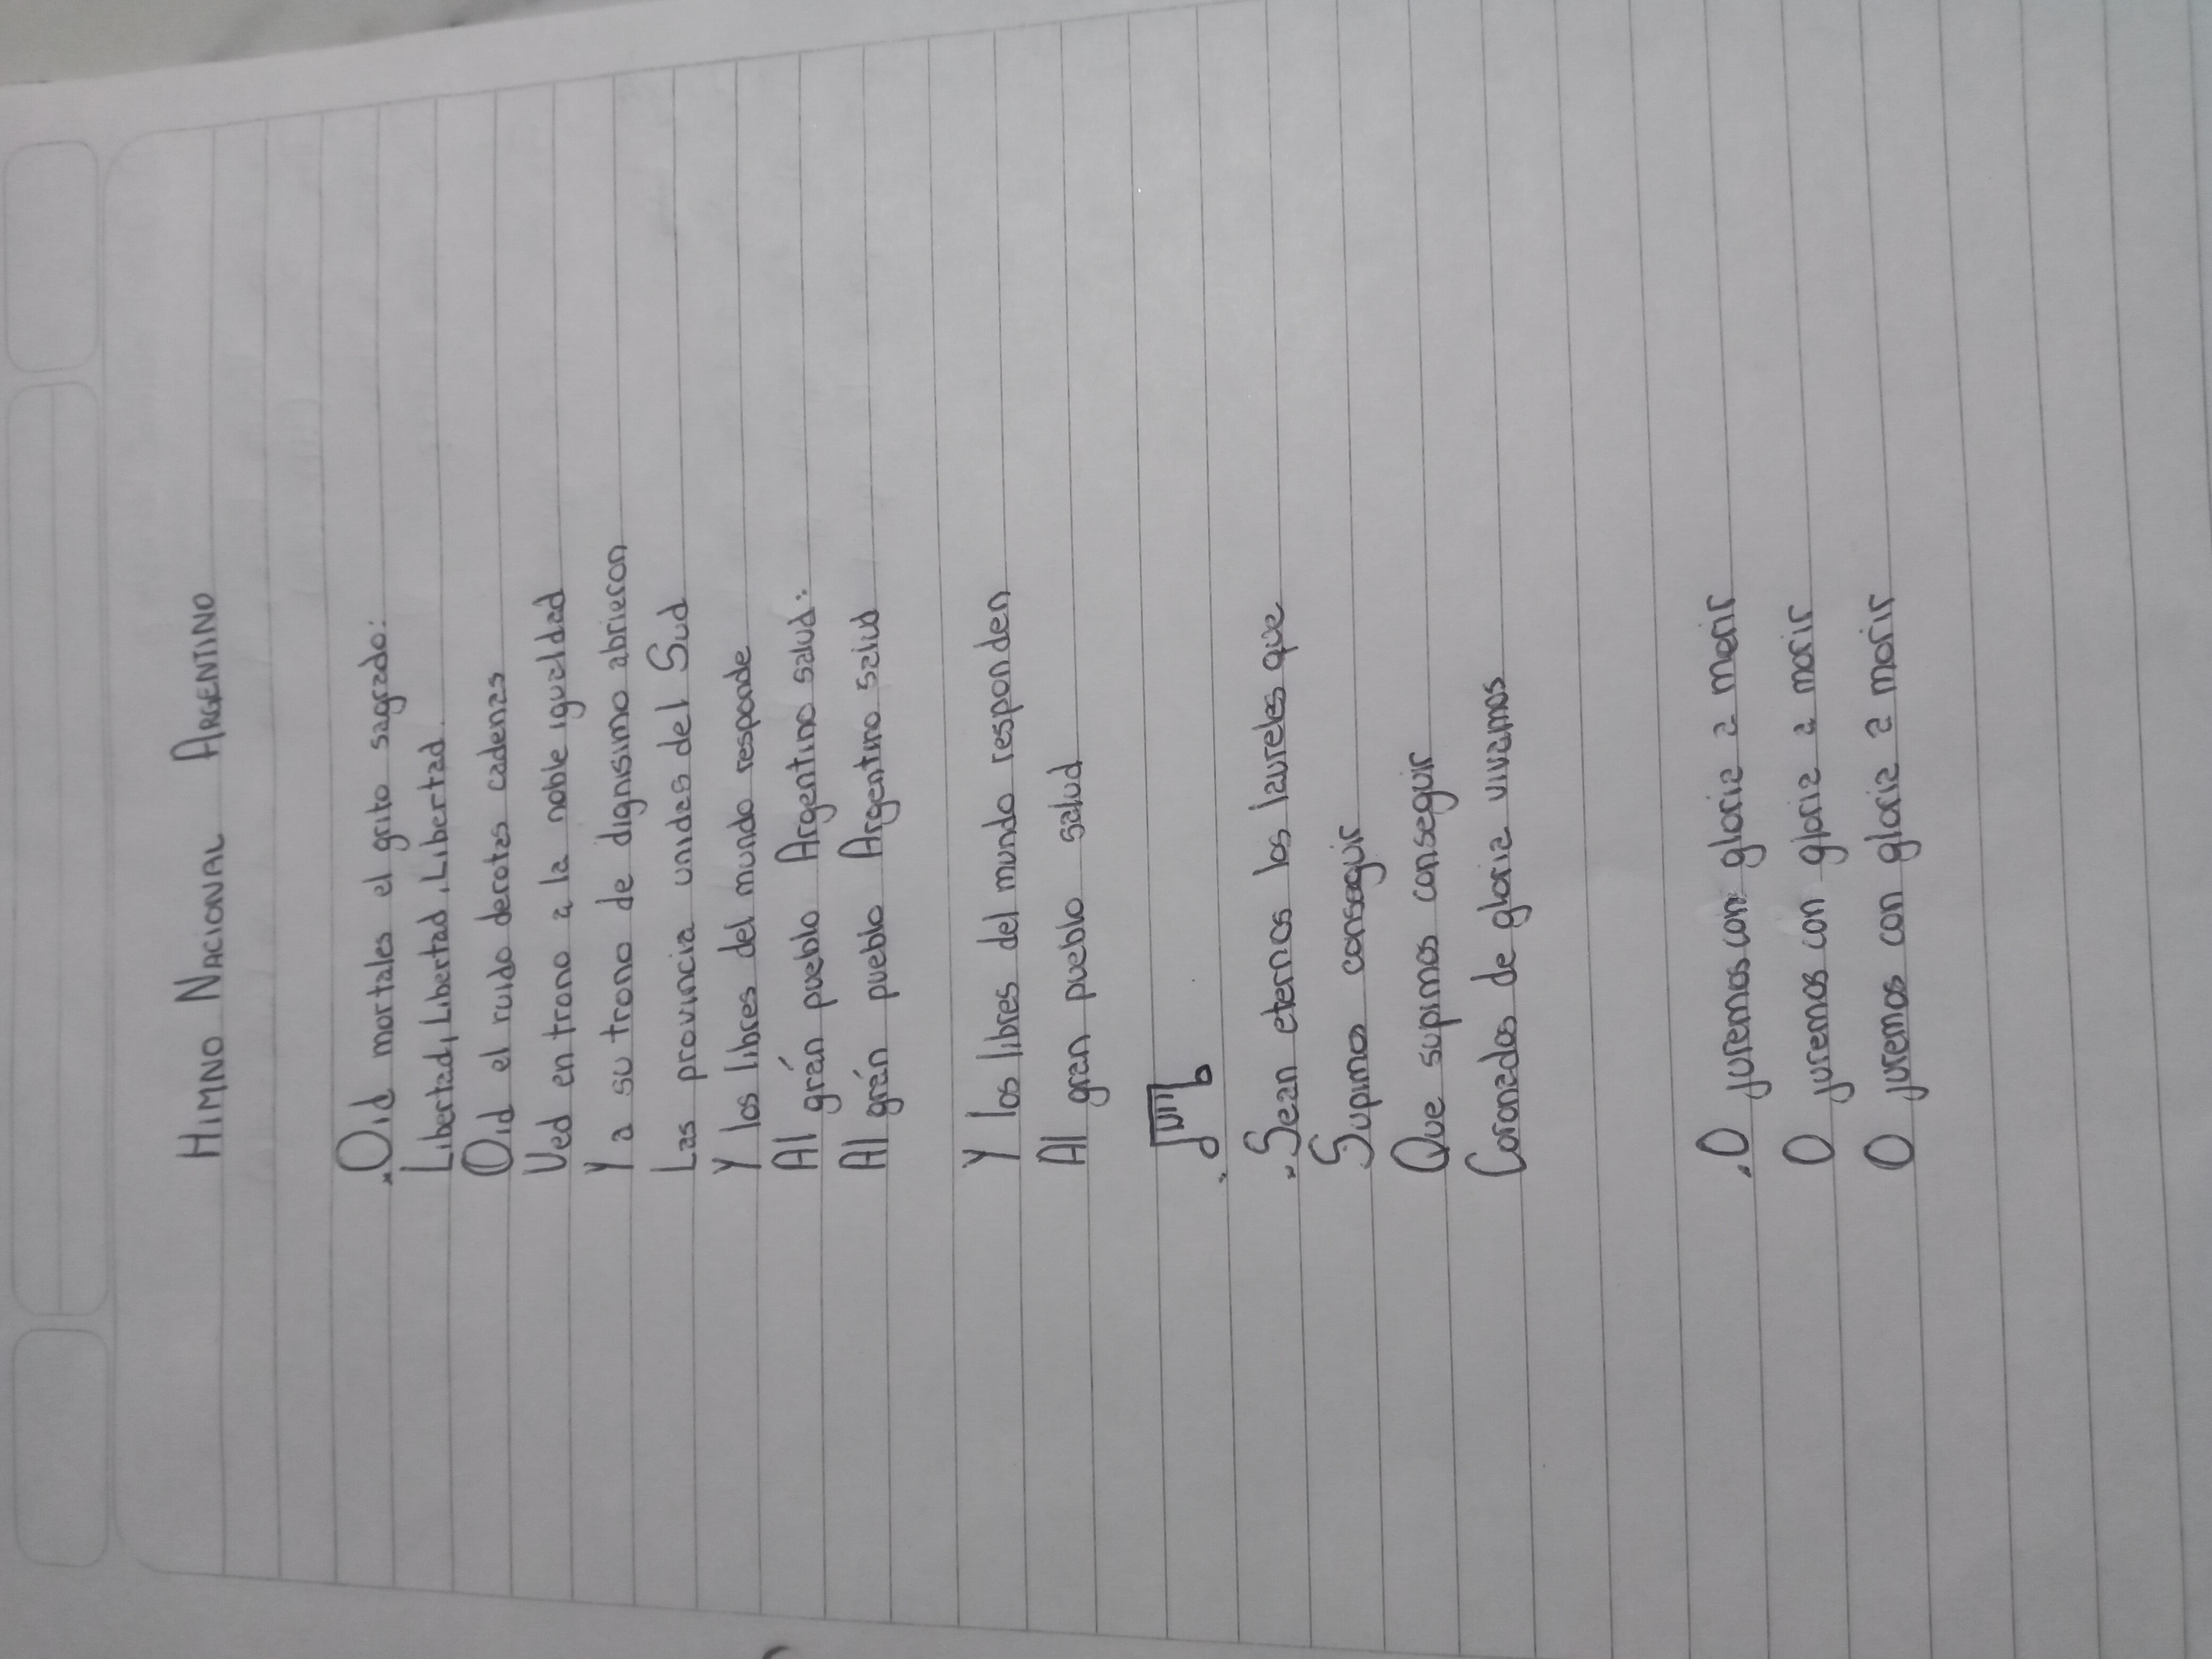 HIMNO NACIONAL ARGENTINO
.Oid mortales el grito sagrado:
Libertad, Libertad, Libertad.
Oid el ruido derotas cadenas
Ved en trono a la noble igualdad
Y a su trono de dignisimo abrieron
Las provincia unidas del Sud
Y los libres del mundo responde
Al grán pueblo Argentino salud:
Al grán pueblo Argentino salud
Y los libres del mundo responden
Al gran pueblo salud
.Sean eternos los laureles que
Supimos conseguir
Que supimos conseguir
Coronados de gloria vivamos
.O juremos con gloria a morir
O juremos con gloria a morir
O juremos con gloria a morir